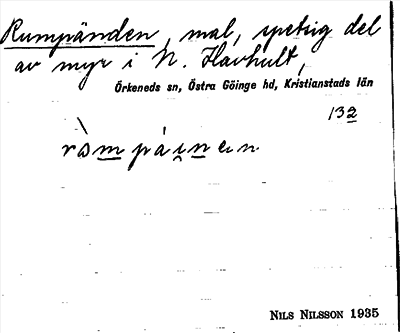 Rumpänden, mal, spetsig del
av myr i N. Havhult,
Örkeneds sn, Östra Göinge hd, Kristianstads län
132
ròm pá i n en
NILS NILSSON 1935